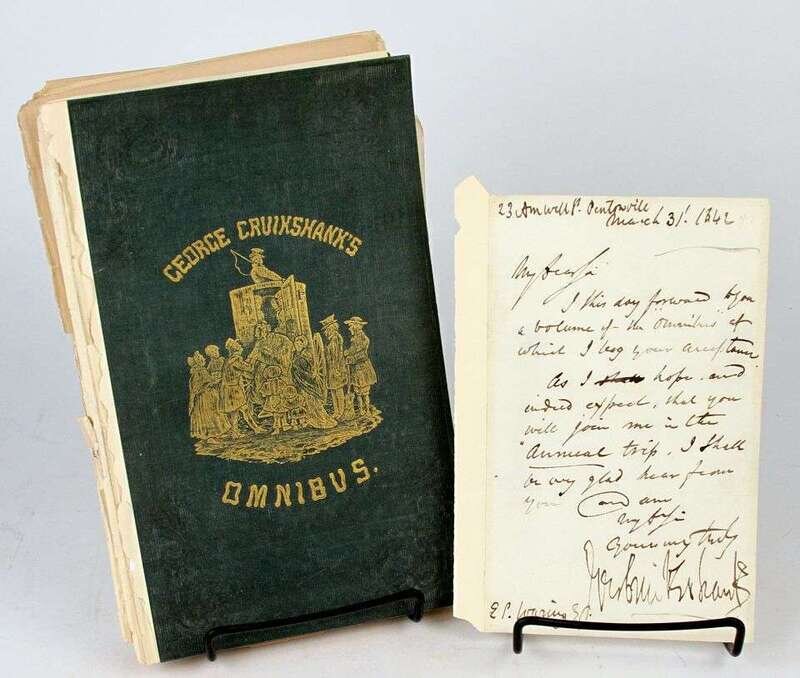 GEORGE CRUIKSHANK'S
OMNIBUS.
23 Amwell St. Pentonville
March 31st. 1842
My dear Sir
I this day forward to you
a volume of the "Omnibus" of
which I beg your acceptance.
As I hope, and
indeed expect, that you
will join me in the
"Annual trip, I shall
be very glad hear from
you and am
My dr Sir
Yours very truly
Geo Cruikshank